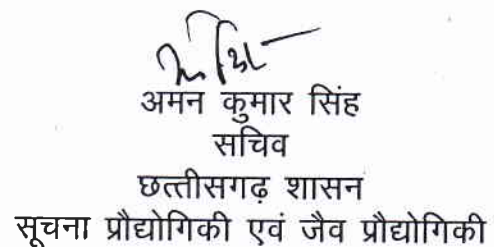 अमन कुमार सिंह
सचिव
छत्तीसगढ़ शासन
सूचना प्रौद्योगिकी एवं जैव प्रौद्योगिकी